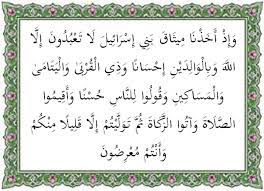 وَإِذْ أَخَذْنَا مِيثَاقَ بَنِي إِسْرَائِيلَ لَا تَعْبُدُونَ إِلَّا
اللَّهَ وَبِالْوَالِدَيْنِ إِحْسَانًا وَذِي الْقُرْبَى وَالْيَتَامَى
وَالْمَسَاكِينِ وَقُولُوا لِلنَّاسِ حُسْنًا وَأَقِيمُوا
الصَّلَاةَ وَآتُوا الزَّكَاةَ ثُمَّ تَوَلَّيْتُمْ إِلَّا قَلِيلًا مِنْكُمْ
وَأَنْتُمْ مُعْرِضُونَ